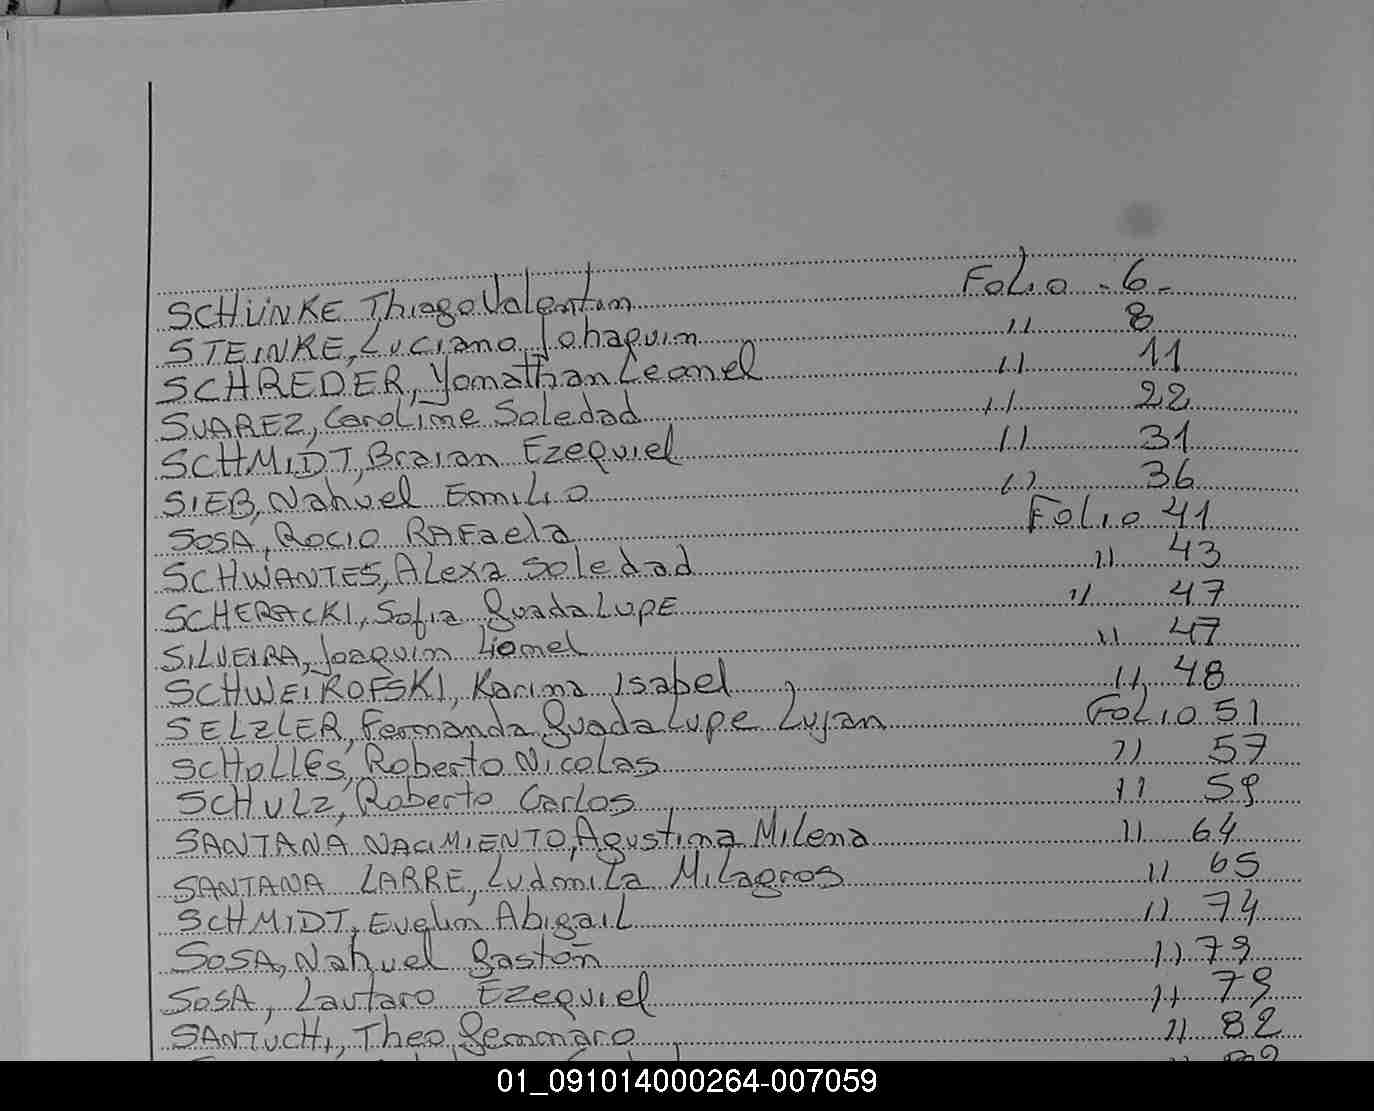 SCHÜNKE Thiago Valentin Folio - 6 -
STEINKE, Luciano Johaquin " 8
SCHREDER, Yonathan Leonel " 11
SUAREZ, Caroline Soledad " 22
SCHMIDT, Braian Ezequiel " 31
SIEB, Nahuel Emilio " 36
SOSA, Rocio Rafaela Folio 41
SCHWANTES, Alexa Soledad " 43
SCHERACKI, Sofia Guadalupe " 47
SILVEIRA, Joaquin Lionel " 47
SCHWEIROFSKI, Karina Isabel " 48
SELZLER, Fernanda Guadalupe Lujan Folio 51
SCHOLLES, Roberto Nicolas " 57
SCHULZ, Roberto Carlos " 59
SANTANA NACIMIENTO, Agustina Milena " 64
SANTANA LARRE, Ludmila Milagros " 65
SCHMIDT, Evelin Abigail " 74
SOSA, Nahuel Gastón " 79
SOSA, Lautaro Ezequiel " 79
SANTUCHI, Theo Gennaro " 82
01_091014000264-007059